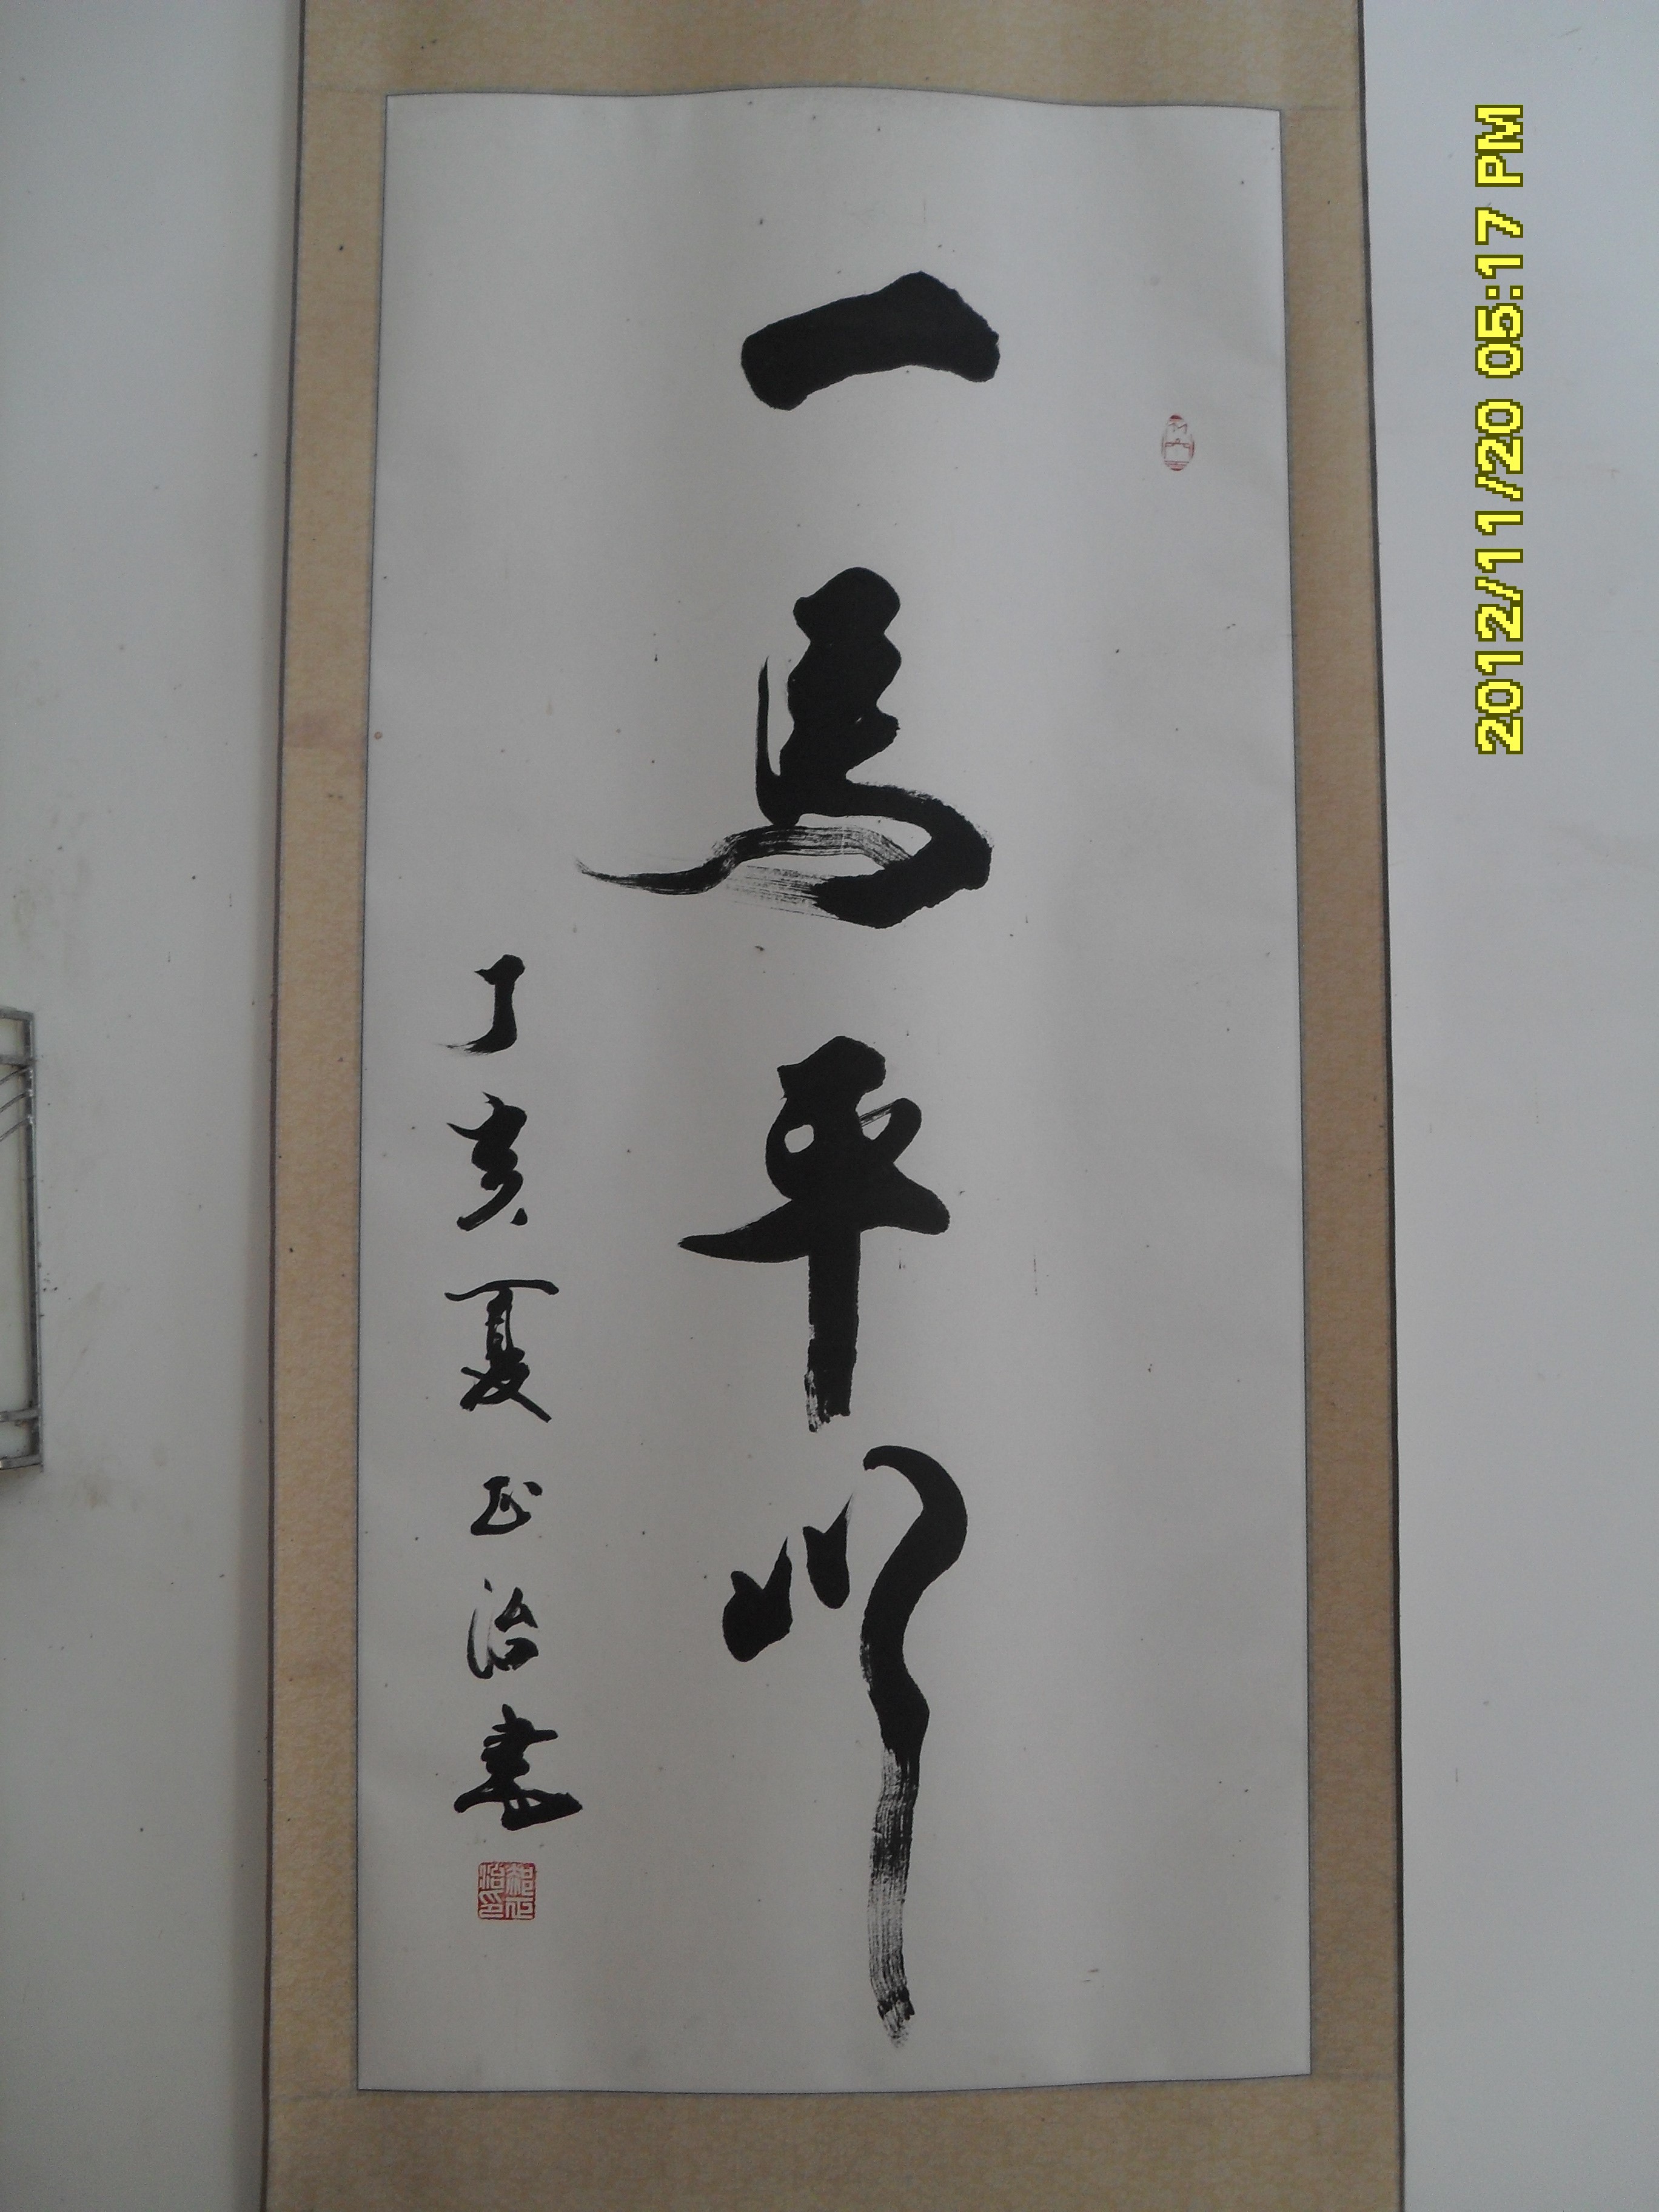 一馬平川
丁亥夏正治書
2012/11/20 05:17 PM